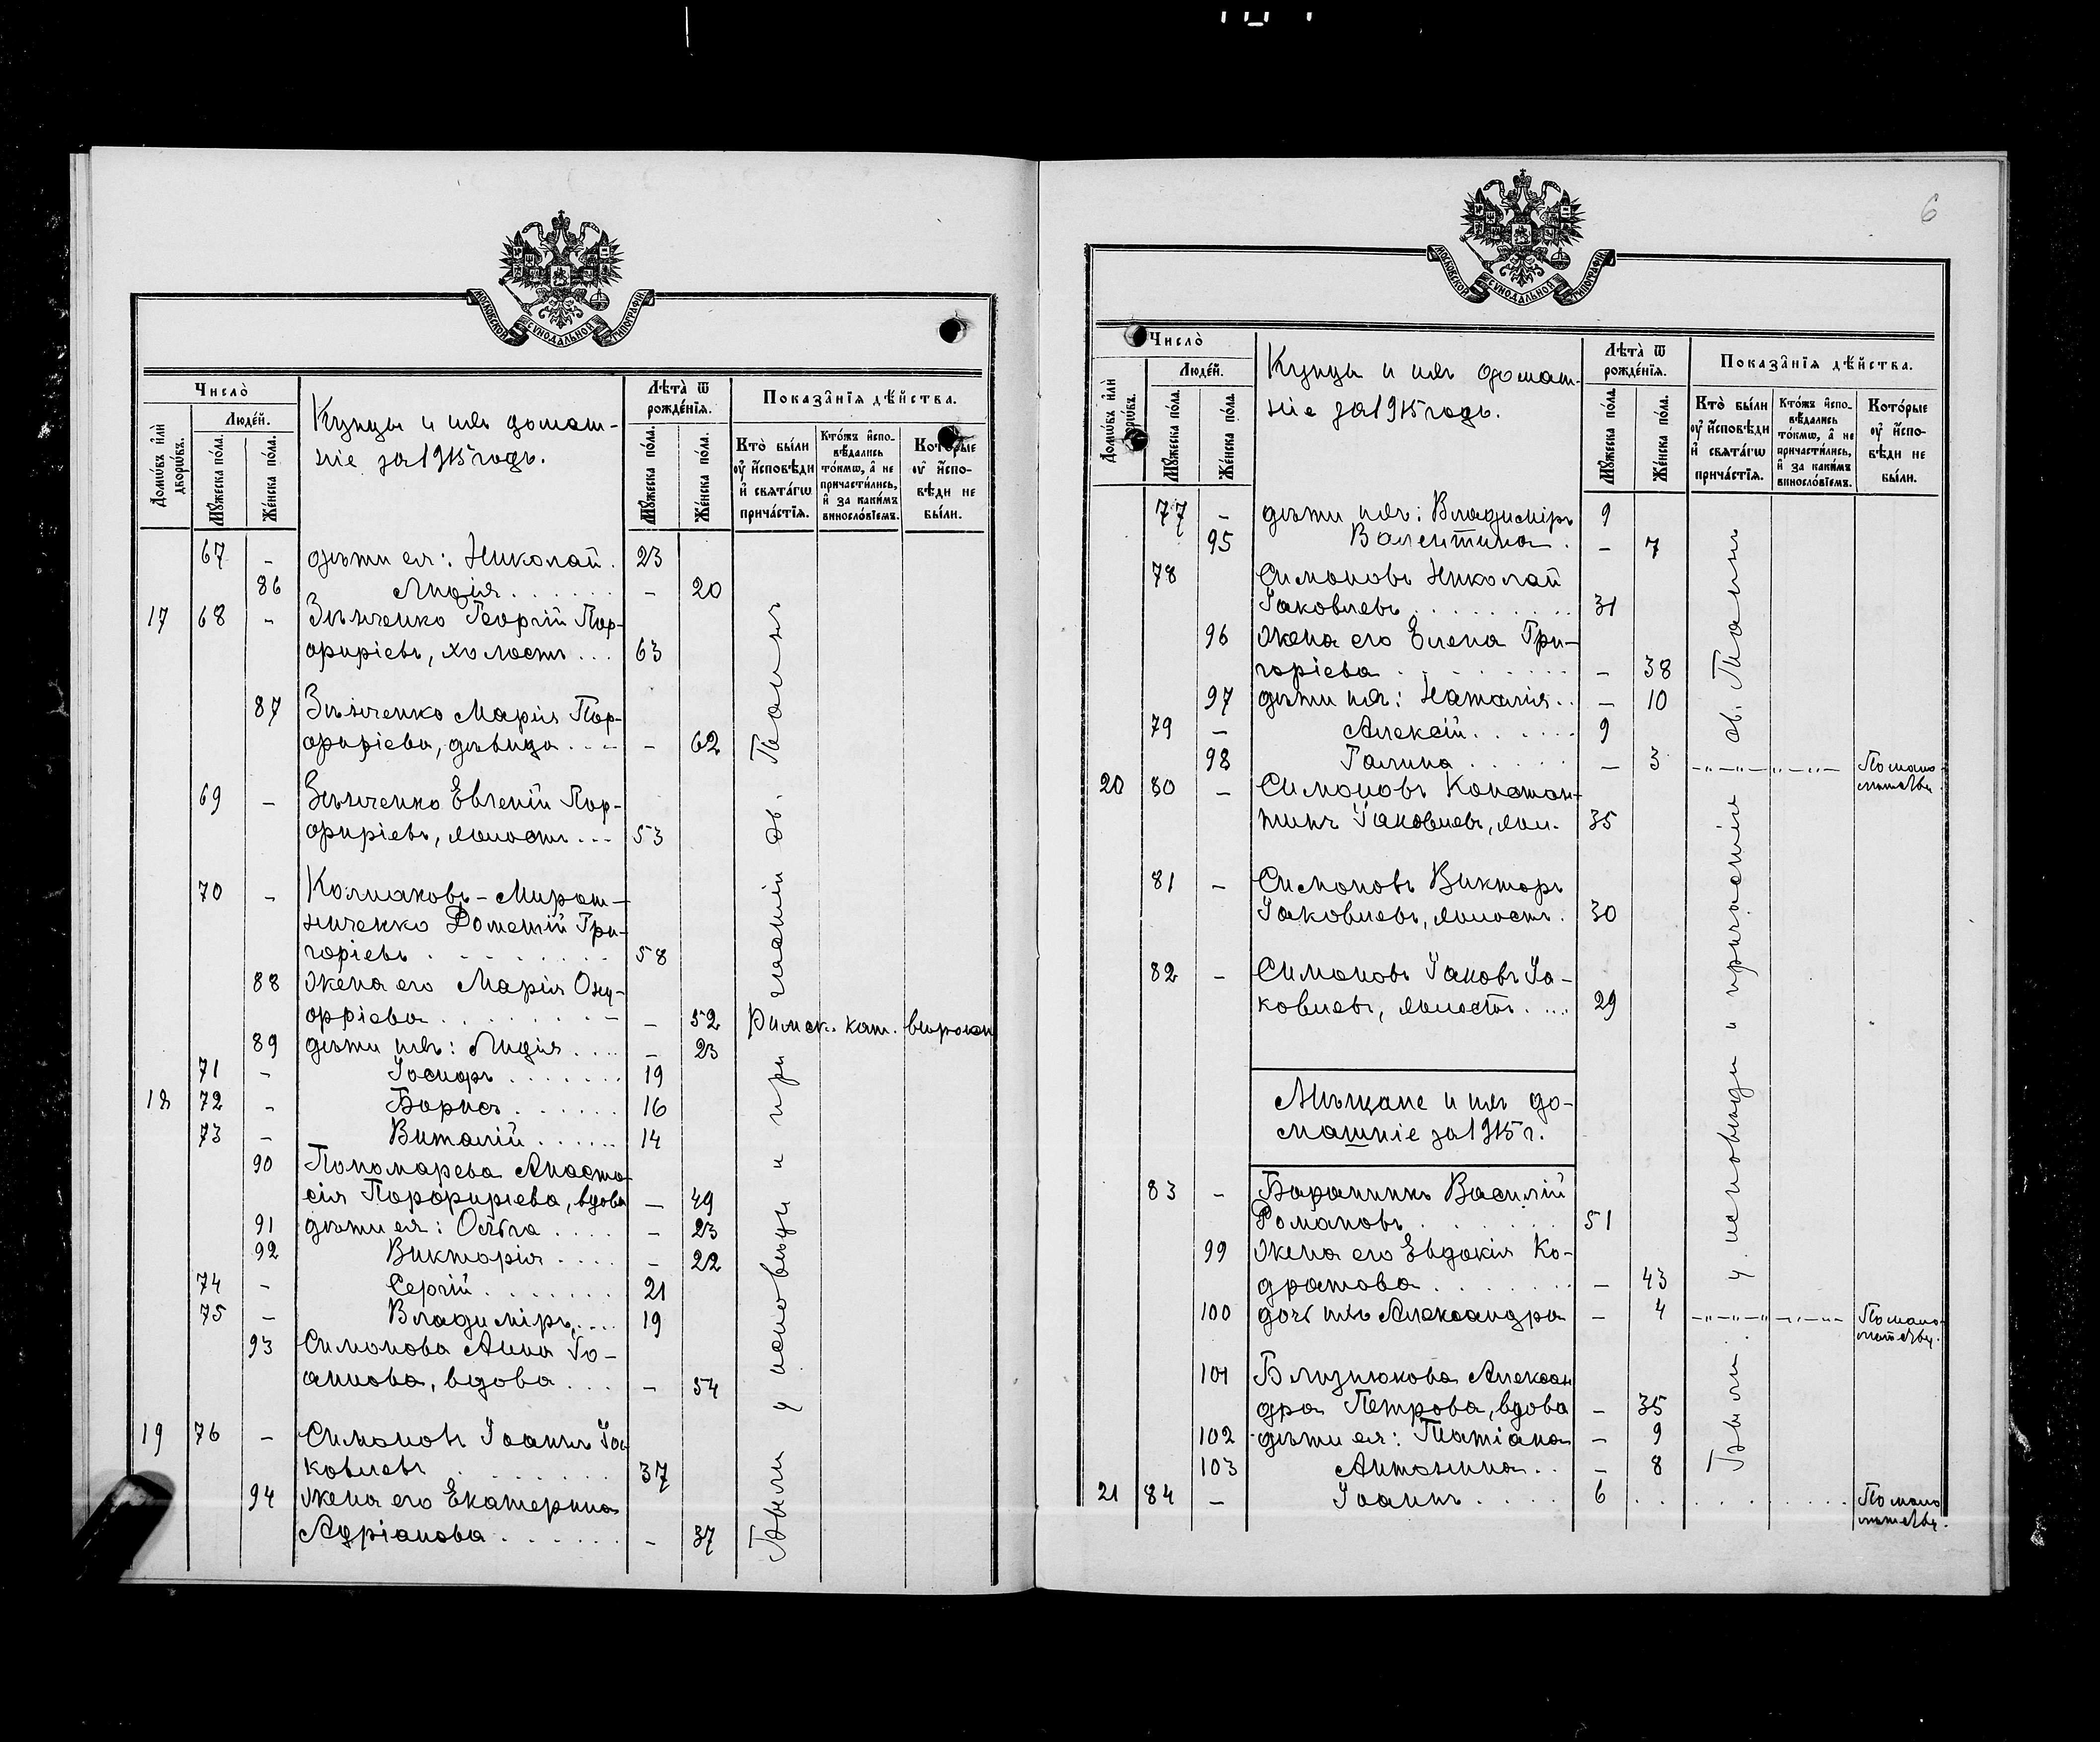 МОСКОВСКОЙ СѴНОДАЛЬНОЙ ТИПОГРАФІИ
Число̀
Домѡ́въ и҆лѝ дворѡ́въ.
Люде́й.
Мꙋ́жеска по́ла.
Же́нска по́ла.
Купцы и ихъ домаш-
ніе за 1915 годъ.
Лѣ́та ѿ рожде́нїѧ.
Мꙋ́жеска по́ла.
Же́нска по́ла.
Показа̑нїѧ дѣ́йства.
Кто̀ бы́ли ᲂу҆ и҆́сповѣди и҆ свѧта́гѡ прича́стїѧ.
Кто́жъ и҆спо- вѣ́дались то́кмѡ, а҆ не причасти́лись, и҆ за каки́мъ винослов́їемъ.
Кото́рые ᲂу҆ и҆́спо- вѣди не бы́ли.
67 - дѣти ея: Николай . 23
86 Лидія . . . . . . . - 20
17 68 - Зѣнченко Георгій Пор-
фиріевъ, холостъ . . . 63
87 Зѣнченко Марія Пор-
фиріева, дѣвица . . - - 62
69 - Зѣнченко Евгеній Пор-
фиріевъ, холостъ . . . 53
70 - Колпаковъ-Мирош-
ниченко Рометій Гри-
горіевъ . . . . . . . 58
88 Жена его Марія Ону-
фріева . . . . . . . - 52 Римск. кат. вѣроисп
89 дѣти ихъ: Лидія . . . . - 23
71 - Іосифъ . . . . . . . 19
18 72 - Борисъ . . . . . . 16
73 - Виталій . . . . . . 14
90 Пономарева Анаста-
сія Порфиріева, вдова - 49
91 дѣти ея: Ольга . . . . - 23
92 Викторія . . . . - 22
74 - Сергій . . . . . . . 21
75 - Владиміръ . . . . 19
93 Симонова Анна Іо-
аннова, вдова . . . - 54
19 76 - Симоновъ Іоаннъ Іа-
ковлевъ . . . . . . . 37
94 Жена его Екатерина
Адріанова . . . . . . - 37
Были у исповѣди и причастіи св. Таинъ
6
МОСКОВСКОЙ СѴНОДАЛЬНОЙ ТИПОГРАФІИ
Число̀
Домѡ́въ и҆лѝ дворѡ́въ.
Люде́й.
Мꙋ́жеска по́ла.
Же́нска по́ла.
Купцы и ихъ домаш-
ніе за 1915 годъ.
Лѣ́та ѿ рожде́нїѧ.
Мꙋ́жеска по́ла.
Же́нска по́ла.
Показа̑нїѧ дѣ́йства.
Кто̀ бы́ли ᲂу҆ и҆́сповѣди и҆ свѧта́гѡ прича́стїѧ.
Кто́жъ и҆спо- вѣ́дались то́кмѡ, а҆ не причасти́лись, и҆ за каки́мъ винослов́їемъ.
Кото́рые ᲂу҆ и҆́спо- вѣди не бы́ли.
77 - дѣти ихъ: Владиміръ 9
95 Валентина . - 7
78 Симоновъ Николай
Іаковлевъ . . . . . . . . . 31
96 Жена его Елена Гри-
горіева . . . . . . . . - 38
97 дѣти ихъ: Наталія . . - 10
79 - Алексій . . . . . . 9
98 Галина . . . . . - 3 По мало-
лѣтству
20 80 - Симоновъ Констан-
тинъ Іаковлевъ, хол. 35
81 - Симоновъ Викторъ
Іаковлевъ, холостъ . 30
82 - Симоновъ Іаковъ Іа-
ковлевъ, холостъ . . . . 29
Мѣщане и ихъ до-
машніе за 1915 г.
83 - Баранникъ Василій
Романовъ . . . . . . 51
99 Жена его Евдокія Ко-
дратова . . . . . . . - 43
100 дочь ихъ Александра - 4 По мало-
лѣтству.
101 Близнюкова Алексан
дра Петрова, вдова - 35
102 дѣти ея: Татіана - 9
103 Антонина . . - 8
21 84 - Іоаннъ . . . . 6 . . . . . . . . . По мало
лѣтству.
Были у исповѣди и причастіи св. Таинъ